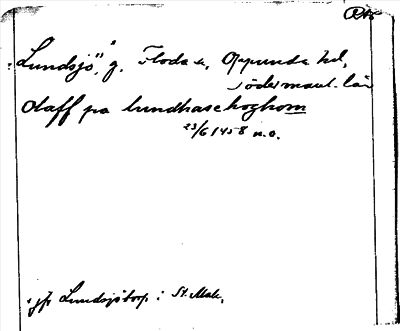 Rtb
"Lundsjö", g. Floda sn, Oppunda hd,
Södermanl. län
Olaff pa lundhaseboghom
23/6 1458 n.o.
jfr Lundsjötorp i St. Malm.